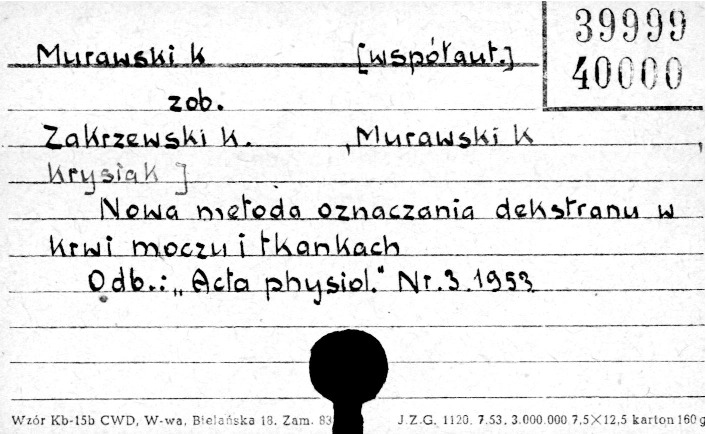 39999
40000
Murawski K [współaut.]
zob.
Zakrzewski K. , Murawski K ,
Krysiak ]
Nowa metoda oznaczania dekstranu w
krwi moczu i tkankach
Odb.: „Acta physiol." Nr. 3. 1953
Wzór Kb-15b CWD, W-wa, Bielańska 18. Zam. J.Z.G. 1120. 7.53. 3.000.000 7,5×12,5 karton 160 g